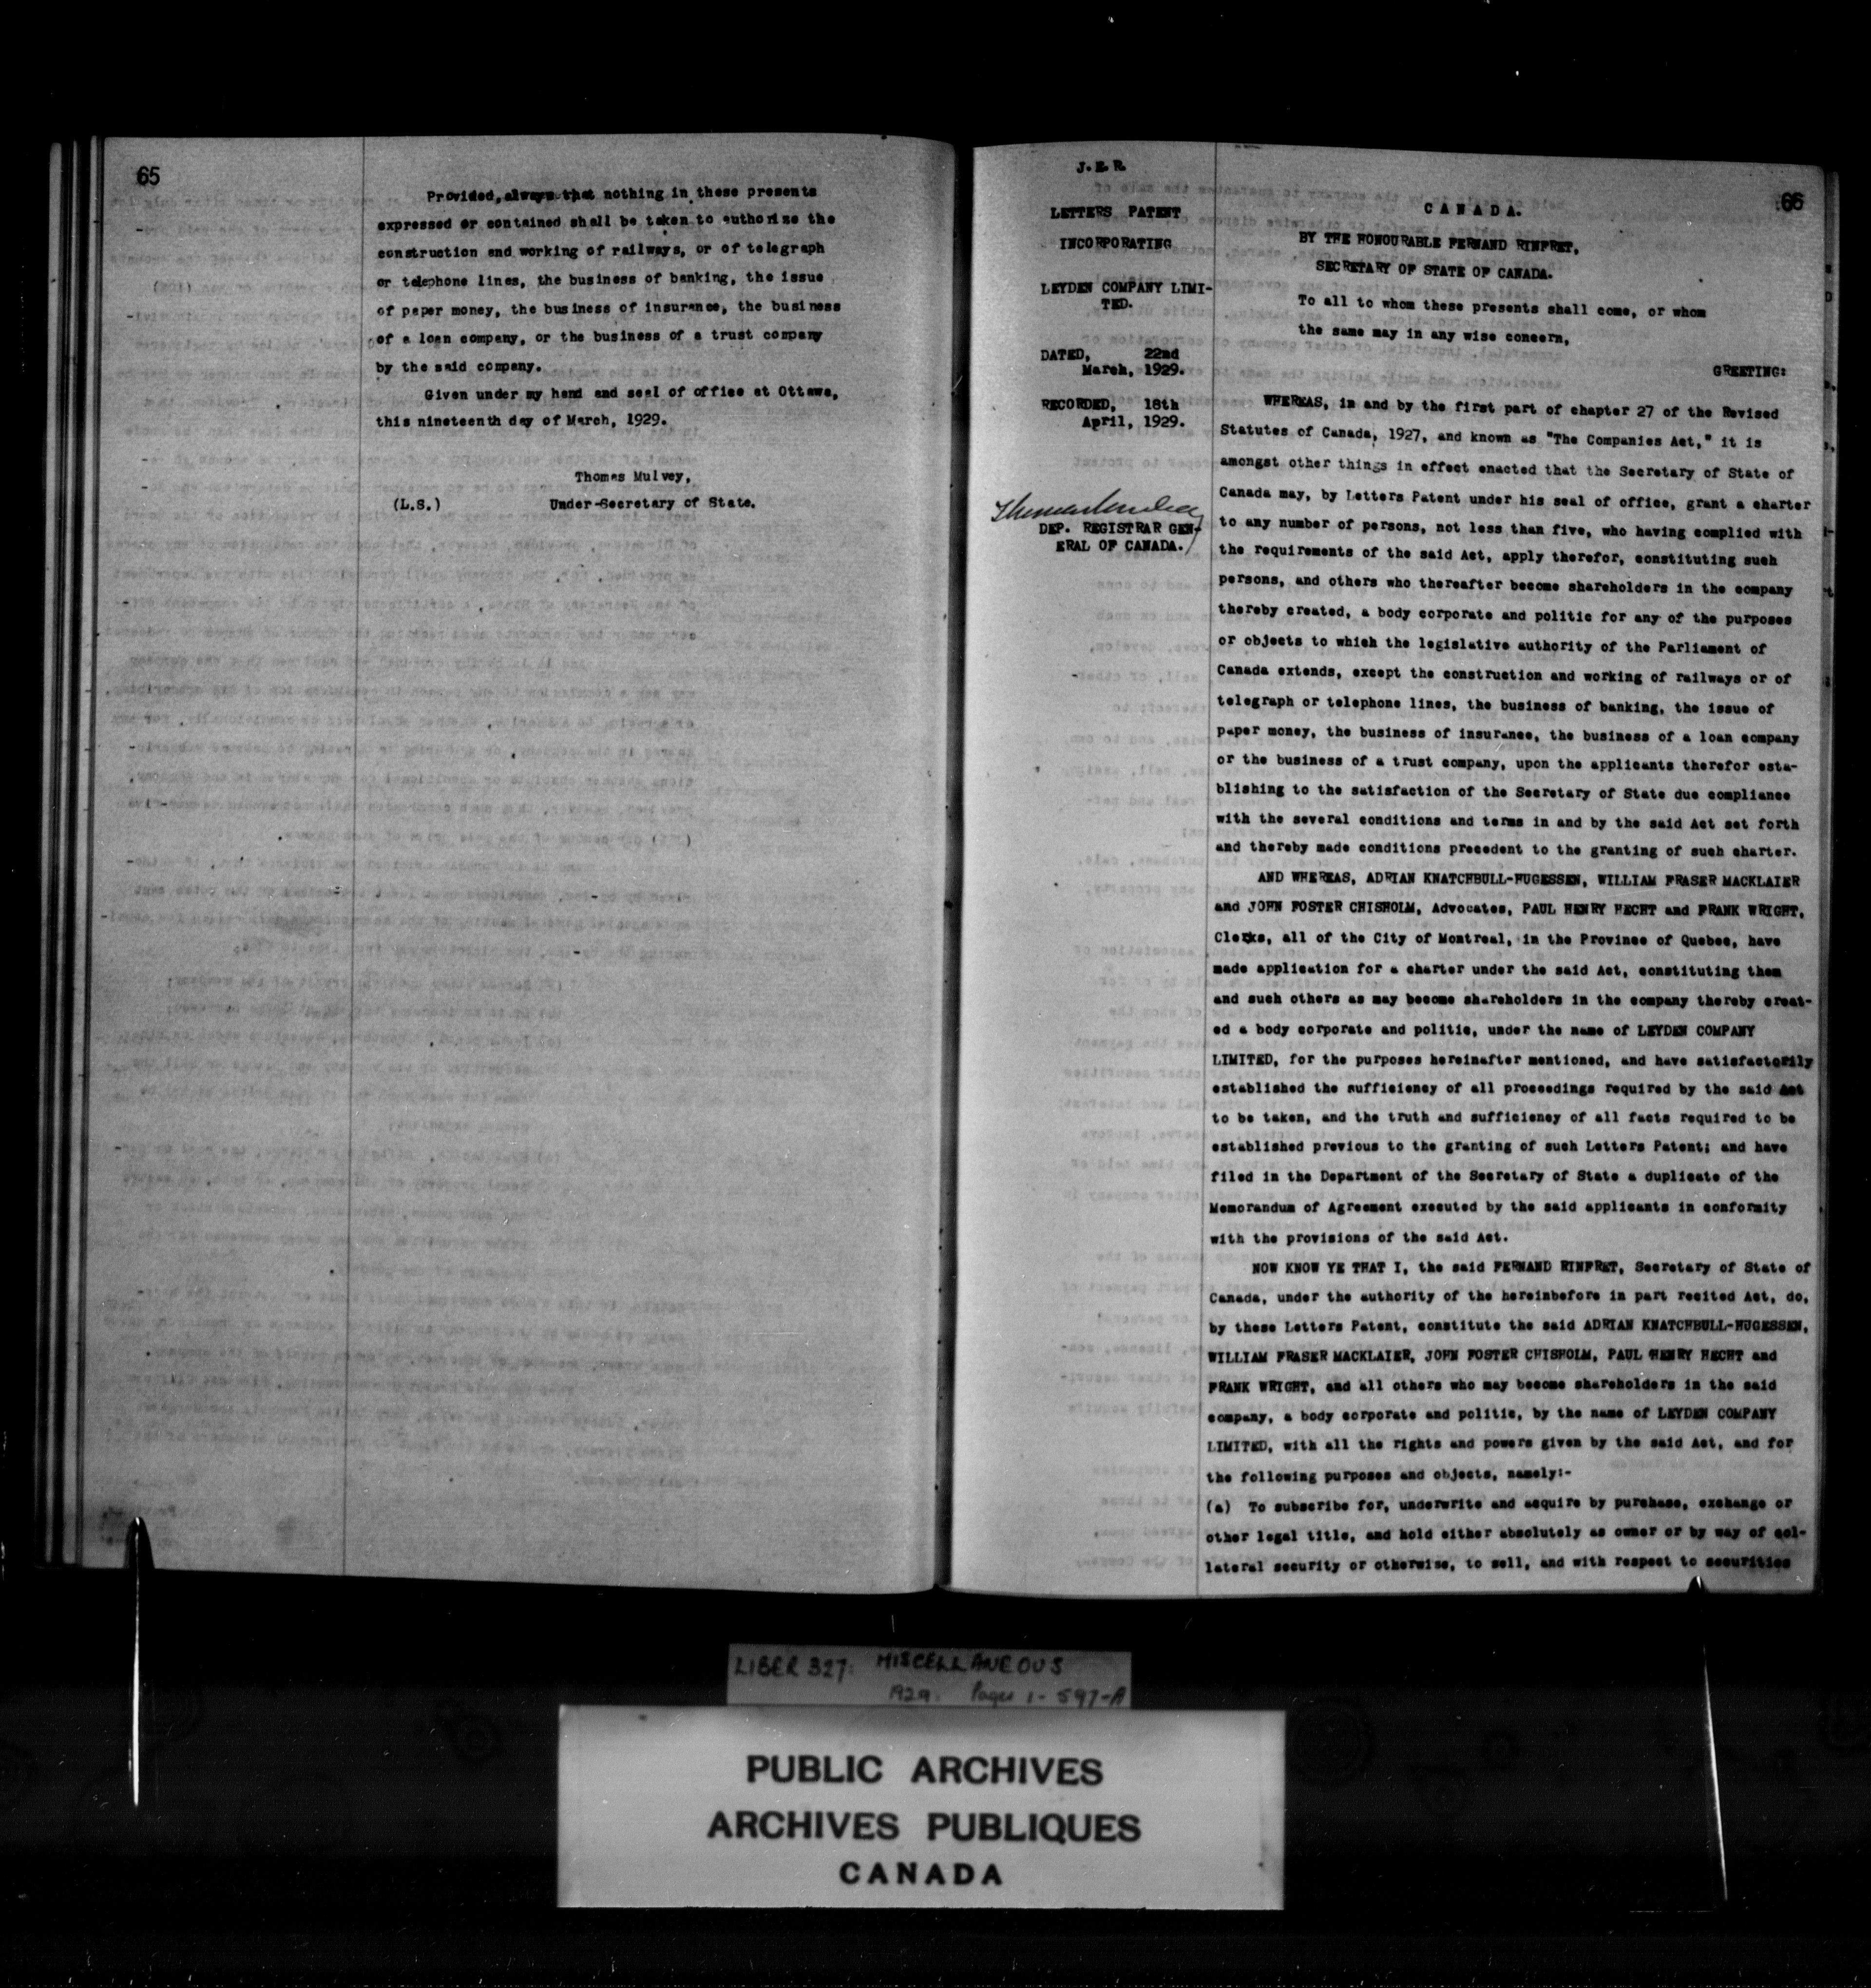 65
Provided, always that nothing in these presents
expressed or contained shall be taken to authorize the
construction and working of railways, or of telegraph
or telephone lines, the business of banking, the issue
of paper money, the business of insurance, the business
of a loan company, or the business of a trust company
by the said company.
Given under my hand and seal of office at Ottawa,
this nineteenth day of March, 1929.
Thomas Mulvey,
(L.S.) Under-Secretary of State.
J.E.R.
LETTERS PATENT
INCORPORATING
LEYDEN COMPANY LIMI-
TED.
DATED, 22nd
March, 1929.
RECORDED, 18th
April, 1929.
Thomas Mulvey
DEP. REGISTRAR GEN-
ERAL OF CANADA.
66
CANADA.
BY THE HONOURABLE FERNAND RINFRET,
SECRETARY OF STATE OF CANADA.
To all to whom these presents shall come, or whom
the same may in any wise concern,
GREETING:
WHEREAS, in and by the first part of chapter 27 of the Revised
Statutes of Canada, 1927, and known as "The Companies Act," it is
amongst other things in effect enacted that the Secretary of State of
Canada may, by Letters Patent under his seal of office, grant a charter
to any number of persons, not less than five, who having complied with
the requirements of the said Act, apply therefor, constituting such
persons, and others who thereafter become shareholders in the company
thereby created, a body corporate and politic for any of the purposes
or objects to which the legislative authority of the Parliament of
Canada extends, except the construction and working of railways or of
telegraph or telephone lines, the business of banking, the issue of
paper money, the business of insurance, the business of a loan company
or the business of a trust company, upon the applicants therefor esta-
blishing to the satisfaction of the Secretary of State due compliance
with the several conditions and terms in and by the said Act set forth
and thereby made conditions precedent to the granting of such charter.
AND WHEREAS, ADRIAN KNATCHBULL-HUGESSEN, WILLIAM FRASER MACKLAIER
and JOHN FOSTER CHISHOLM, Advocates, PAUL HENRY HECHT and FRANK WRIGHT,
Clerks, all of the City of Montreal, in the Province of Quebec, have
made application for a charter under the said Act, constituting them
and such others as may become shareholders in the company thereby creat-
ed a body corporate and politic, under the name of LEYDEN COMPANY
LIMITED, for the purposes hereinafter mentioned, and have satisfactorily
established the sufficiency of all proceedings required by the said Act
to be taken, and the truth and sufficiency of all facts required to be
established previous to the granting of such Letters Patent; and have
filed in the Department of the Secretary of State a duplicate of the
Memorandum of Agreement executed by the said applicants in conformity
with the provisions of the said Act.
NOW KNOW YE THAT I, the said FERNAND RINFRET, Secretary of State of
Canada, under the authority of the hereinbefore in part recited Act, do,
by these Letters Patent, constitute the said ADRIAN KNATCHBULL-HUGESSEN,
WILLIAM FRASER MACKLAIER, JOHN FOSTER CHISHOLM, PAUL HENRY HECHT and
FRANK WRIGHT, and all others who may become shareholders in the said
company, a body corporate and politic, by the name of LEYDEN COMPANY
LIMITED, with all the rights and powers given by the said Act, and for
the following purposes and objects, namely:-
(a) To subscribe for, underwrite and acquire by purchase, exchange or
other legal title, and hold either absolutely as owner or by way of col-
lateral security or otherwise, to sell, and with respect to securities
LIBER 327: MISCELLANEOUS
1929. Pages 1-597-A
PUBLIC ARCHIVES
ARCHIVES PUBLIQUES
CANADA